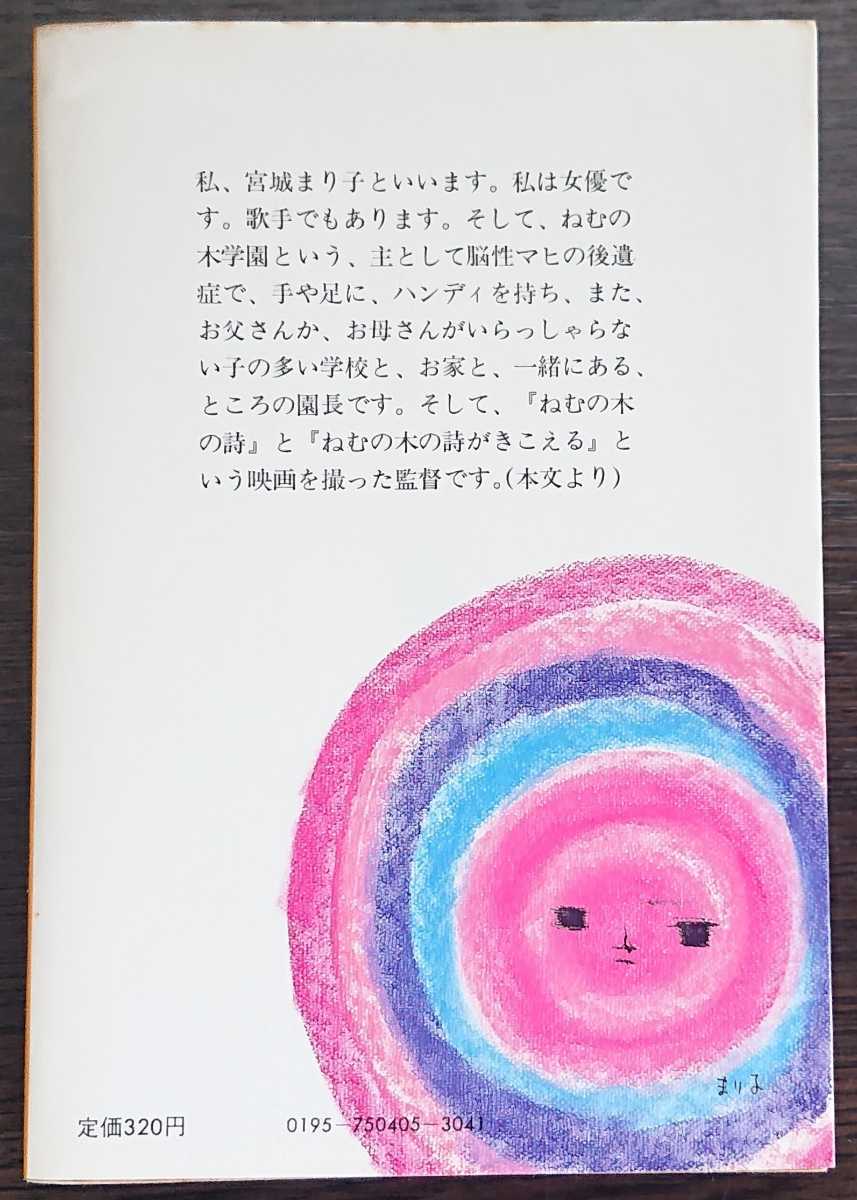 私、宮城まり子といいます。私は女優で
す。歌手でもあります。そして、ねむの
木学園という、主として脳性マヒの後遺
症で、手や足に、ハンディを持ち、また、
お父さんか、お母さんがいらっしゃらな
い子の多い学校と、お家と、一緒にある、
ところの園長です。そして、『ねむの木
の詩』と『ねむの木の詩がきこえる』と
いう映画を撮った監督です。(本文より)
まり子
定価320円
0195-750405-3041